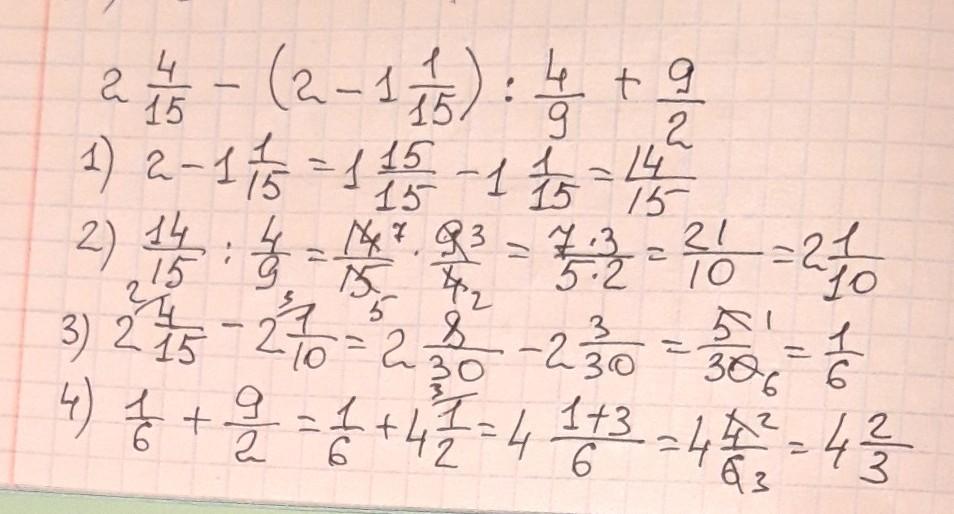 2 4/15 - (2 - 1 1/15) : 4/9 + 9/2
1) 2 - 1 1/15 = 1 15/15 - 1 1/15 = 14/15
2) 14/15 : 4/9 = 14 7/15 5 · 9 3/4 2 = 7·3/5·2 = 21/10 = 2 1/10
3) 2 4/15 2 - 2 1/10 3 = 2 8/30 - 2 3/30 = 5 1/30 6 = 1/6
4) 1/6 + 9/2 = 1/6 + 4 1/2 3 = 4 1+3/6 = 4 4 2/6 3 = 4 2/3